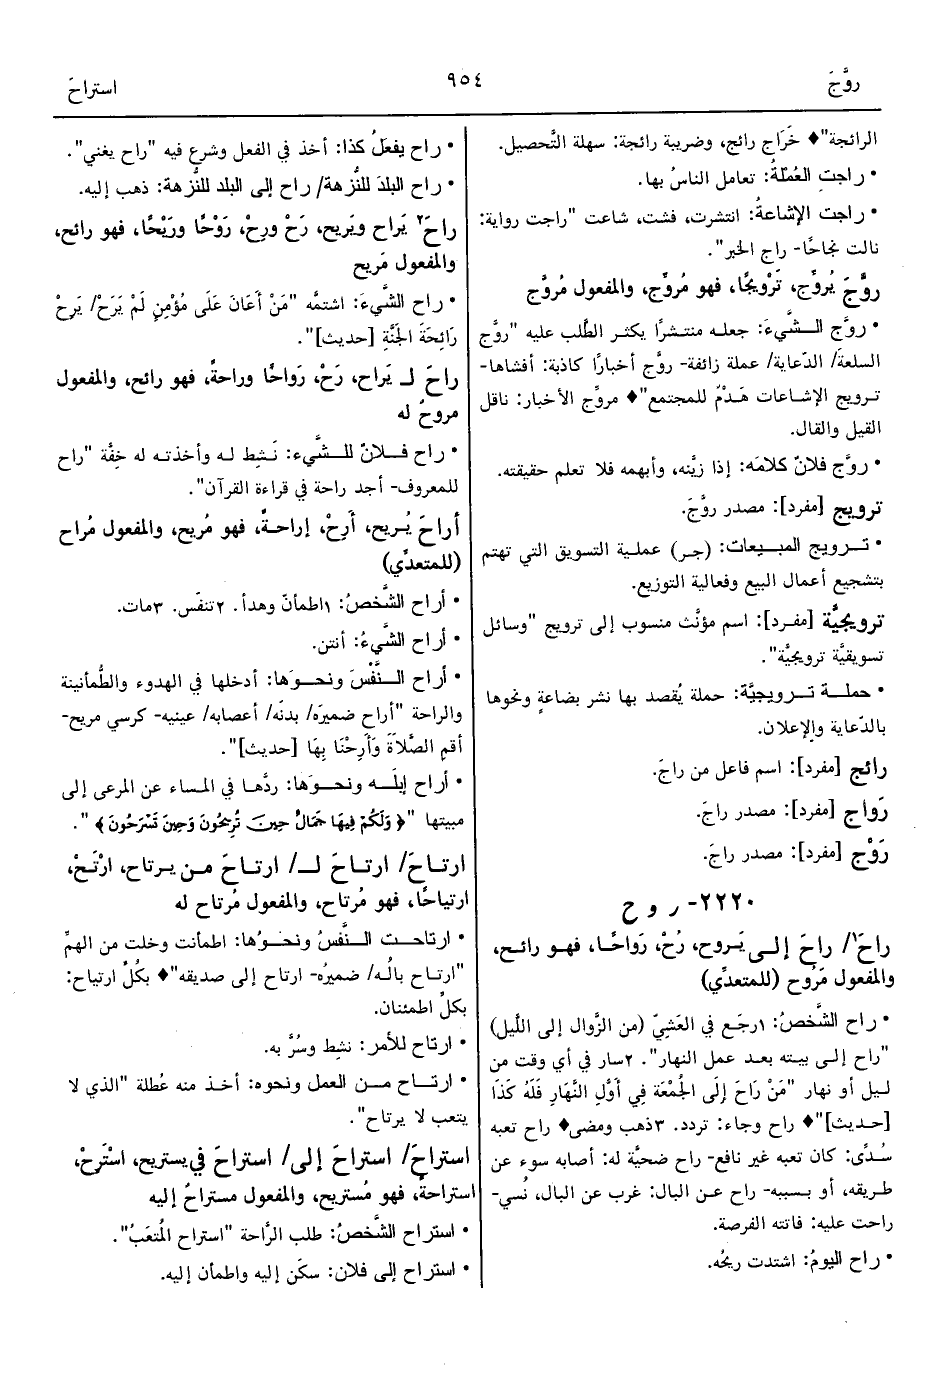 روَّجَ
٩٥٤
استراحَ
الرائجة"♦ خَرَاج رائج، وضريبة رائجة: سهلة التَّحصيل.
• راجتِ العُمْلةُ: تعامل الناسُ بها.
• راجت الإشاعةُ: انتشرت، فشت، شاعت "راجت رواية:
نالت نجاحًا- راج الخبر".
روَّجَ يُروِّج، تَرْويجًا، فهو مُروِّج، والمفعول مُروَّج
• روَّج الشَّيءَ: جعله منتشرًا يكثر الطَّلب عليه "روَّج
السلعةَ/ الدّعايةَ/ عملة زائفة- روَّج أخبارًا كاذبة: أفشاها-
ترويج الإشاعات هَدْمٌ للمجتمع"♦ مروِّج الأخبار: ناقل
القيل والقال.
• روَّج فلانٌ كلامَه: إذا زيَّنه، وأبهمه فلا تعلم حقيقته.
ترويج [مفرد]: مصدر روَّجَ.
• ترويج المبيعات: (جر) عملية التسويق التي تهتم
بتشجيع أعمال البيع وفعالية التوزيع.
ترويجيَّة [مفرد]: اسم مؤنَّث منسوب إلى ترويج "وسائل
تسويقيَّة ترويجيَّة".
• حملة ترويجيَّة: حملة يُقصد بها نشر بضاعةٍ ونحوها
بالدِّعاية والإعلان.
رائج [مفرد]: اسم فاعل من راجَ.
رَواج [مفرد]: مصدر راجَ.
رَوْج [مفرد]: مصدر راجَ.
٢٢٢٠- ر و ح
راحَ١/ راحَ إلى يَروح، رُحْ، رَواحًا، فهو رائح،
والمفعول مَرُوح (للمتعدِّي)
• راح الشَّخصُ: ١رجَع في العَشِيّ (من الزَّوال إلى اللَّيل)
"راح إلى بيته بعد عمل النهار". ٢سار في أي وقت من
ليل أو نهار "مَنْ رَاحَ إِلَى الجُمْعَة فِي أَوَّلِ النَّهَارِ فَلَهُ كَذَا
[حديث]"♦ راح وجاء: تردد. ٣ذهب ومضى♦ راح تعبه
سُدًى: كان تعبه غير نافع- راح ضحيَّة له: أصابه سوء عن
طريقه، أو بسببه- راح عن البال: غرب عن البال، نُسي-
راحت عليه: فاتته الفرصة.
• راح اليومُ: اشتدت ريحُه.
• راح يفعَلُ كذا: أخذ في الفعل وشرع فيه "راح يغني".
• راح البلدَ للنُّزهة/ راح إلى البلد للنُّزهة: ذهب إليه.
راحَ٢ يَراح ويَريح، رَحْ ورِحْ، رَوْحًا ورَيْحًا، فهو رائح،
والمفعول مَريح
• راح الشَّيءَ: اشتمَّه "مَنْ أَعَانَ عَلَى مُؤْمِنٍ لَمْ يَرَحْ/ يَرِحْ
رَائِحَةَ الجَنَّةِ [حديث]".
راحَ لـ يَراح، رَحْ، رَواحًا وراحةً، فهو رائح، والمفعول
مروحٌ له
• راح فلانٌ للشَّيء: نَشِط له وأخذته له خِفَّة "راح
للمعروف- أجد راحة في قراءة القرآن".
أراحَ يُريح، أَرِحْ، إراحةً، فهو مُريح، والمفعول مُراح
(للمتعدِّي)
• أراح الشَّخصُ: ١اطمأنّ وهدأ. ٢تنفَّس. ٣مات.
• أراح الشَّيءُ: أنتن.
• أراح النَّفْسَ ونحوَها: أدخلها في الهدوء والطُّمأنينة
والراحة "أراح ضميرَه/ بدنَه/ أعصابه/ عينيه- كرسي مريح-
أقم الصَّلاَةَ وَأَرِحْنَا بِهَا [حديث]".
• أراح إبلَه ونحوَها: ردَّها في المساء عن المرعى إلى
مبيتها "﴿ وَلَكُمْ فِيهَا جَمَالٌ حِينَ تُرِيحُونَ وَحِينَ تَسْرَحُونَ ﴾ ".
ارتاحَ/ ارتاحَ لـ/ ارتاحَ من يرتاح، ارْتَحْ،
ارتياحًا، فهو مُرتاح، والمفعول مُرتاح له
• ارتاحت النَّفْسُ ونحوُها: اطمأنت وخلت من الهمِّ
"ارتاح بالُه/ ضميرُه- ارتاح إلى صديقه"♦ بكُلِّ ارتياح:
بكلِّ اطمئنان.
• ارتاح للأمر: نشِط وسُرَّ به.
• ارتاح من العمل ونحوه: أخذ منه عُطلة "الذي لا
يتعب لا يرتاح".
استراحَ/ استراحَ إلى/ استراحَ في يستريح، اسْتَرِحْ،
استراحةً، فهو مُستريح، والمفعول مستراحٌ إليه
• استراح الشَّخصُ: طلب الرَّاحة "استراح المُتعَبُ".
• استراح إلى فلان: سكَن إليه واطمأن إليه.